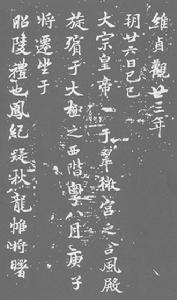 維貞觀廿三年
五月廿六日己巳
大宗皇帝于翠微宮之含風殿
旋殯于大極之西階粤八月庚子
將遷坐于
昭陵禮也鳳紀疑秋龍帷將曙